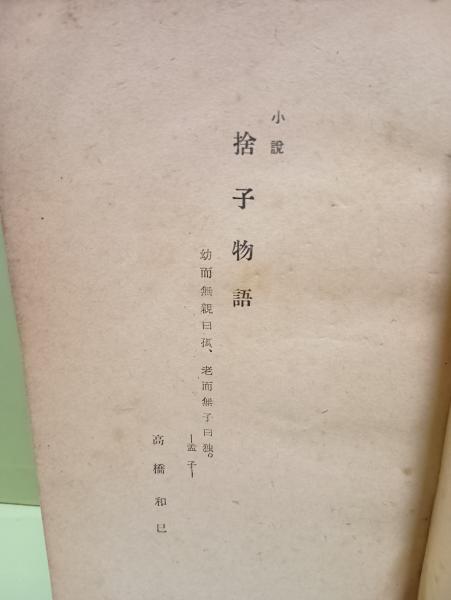 小説
捨子物語
幼而無親曰孤、老而無子曰独。
―孟子―
高橋和巳